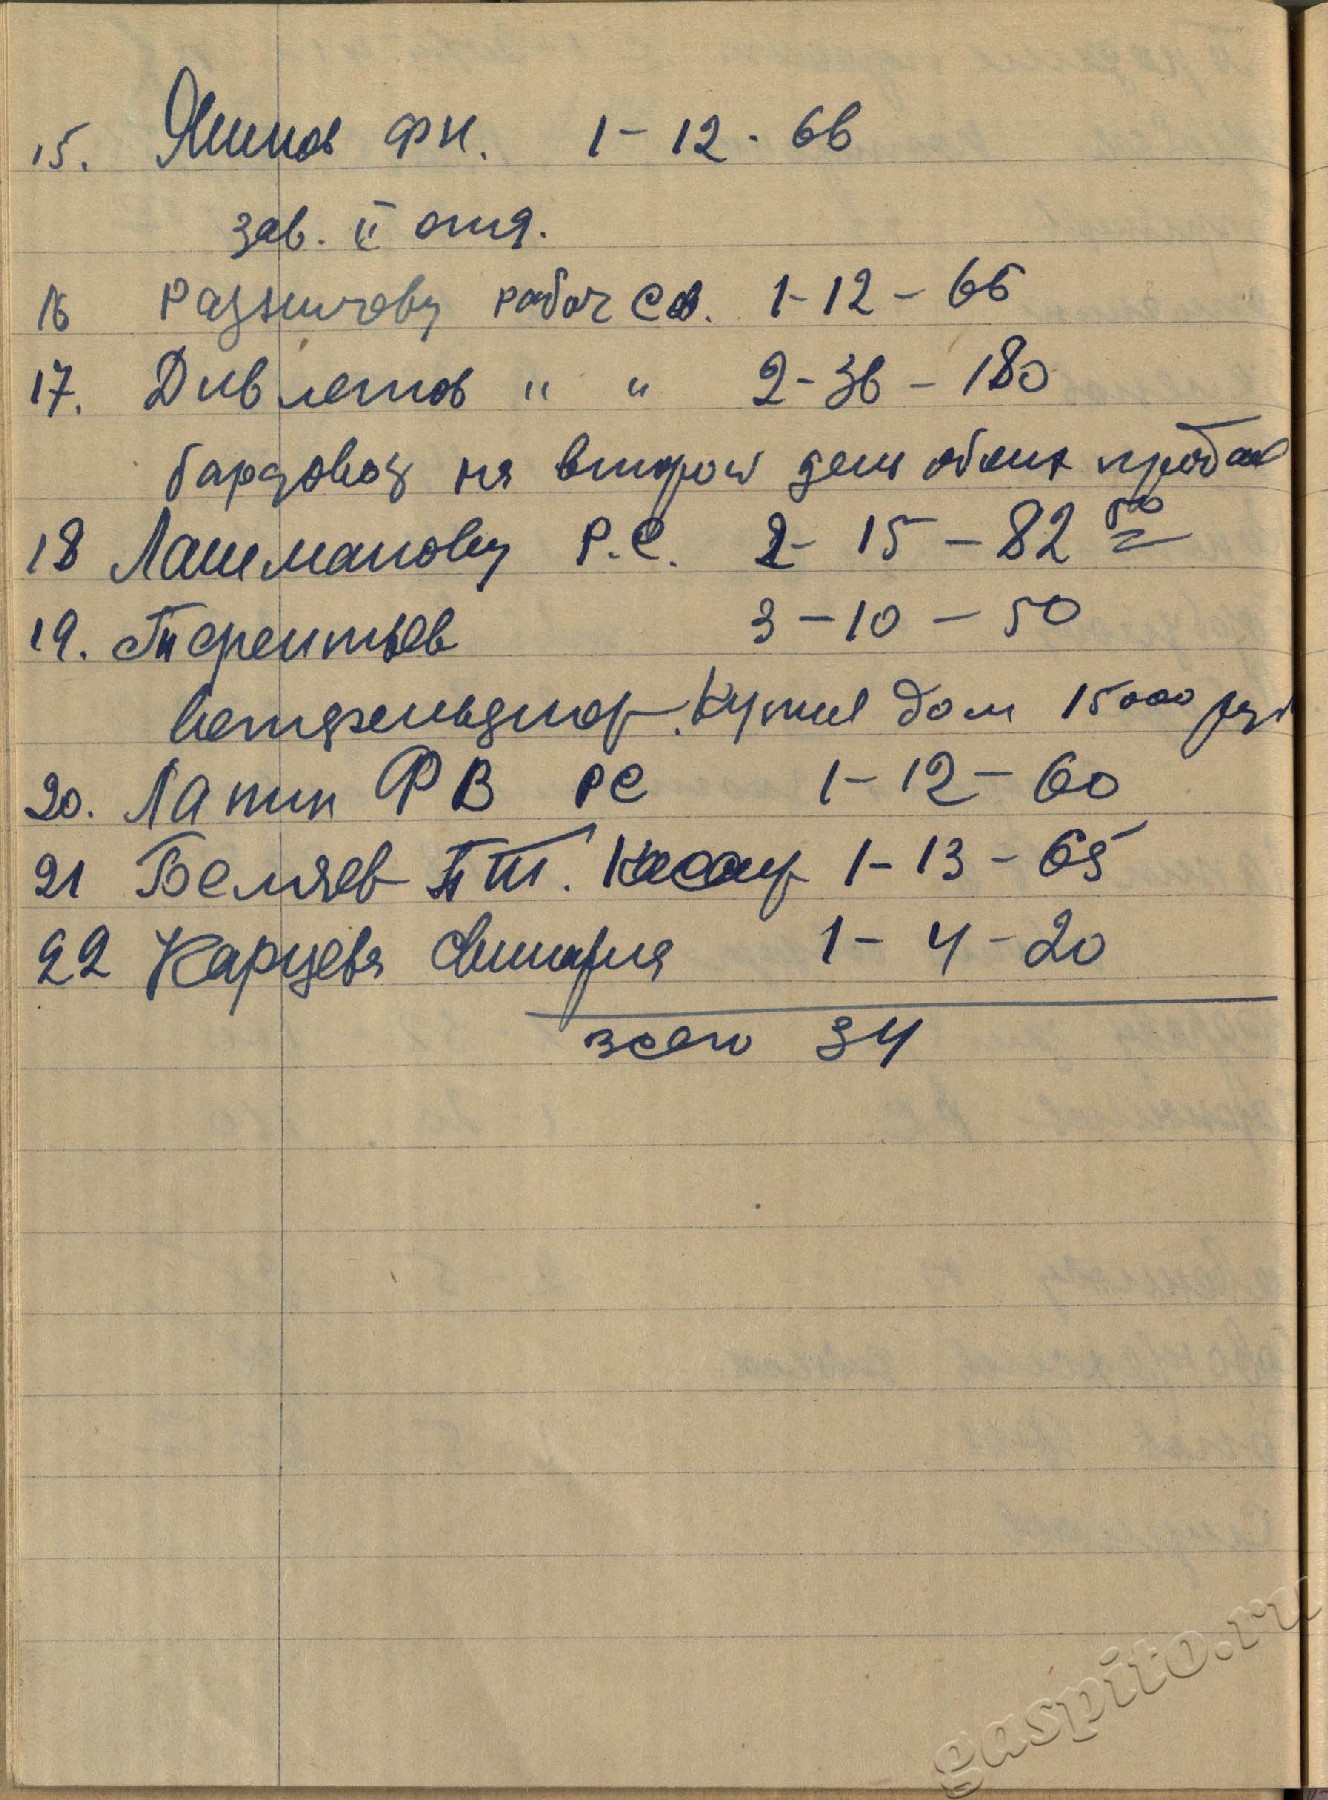 15. Яшнов ФН. 1-12-66
зав. II отд.
16 рабоч Сов. 1-12-66
17. Дивлетов " " 2-36-180
на второй день обмена
18 Лашманову Р.С. 2-15-82 50
19. Терентьев 3-10-50
ветфельдшер. Купил дом 15000 руб
20. Лапин ФВ РС 1-12-60
21 Беляев ПТ. Кассир 1-13-65
22 Карцева свинарка 1-4-20
всего 34
gaspito.ru